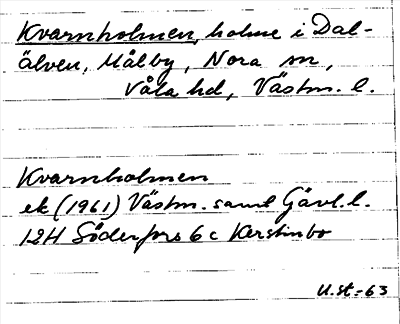 Kvarnholmen, holme i Dal-
älven, Målby, Nora sn,
Våla hd, Västm. l.
Kvarnholmen
ek (1961) Västm. samt Gävl. l.
12H Söderfors 6 c Kerstinbo
U.st-63